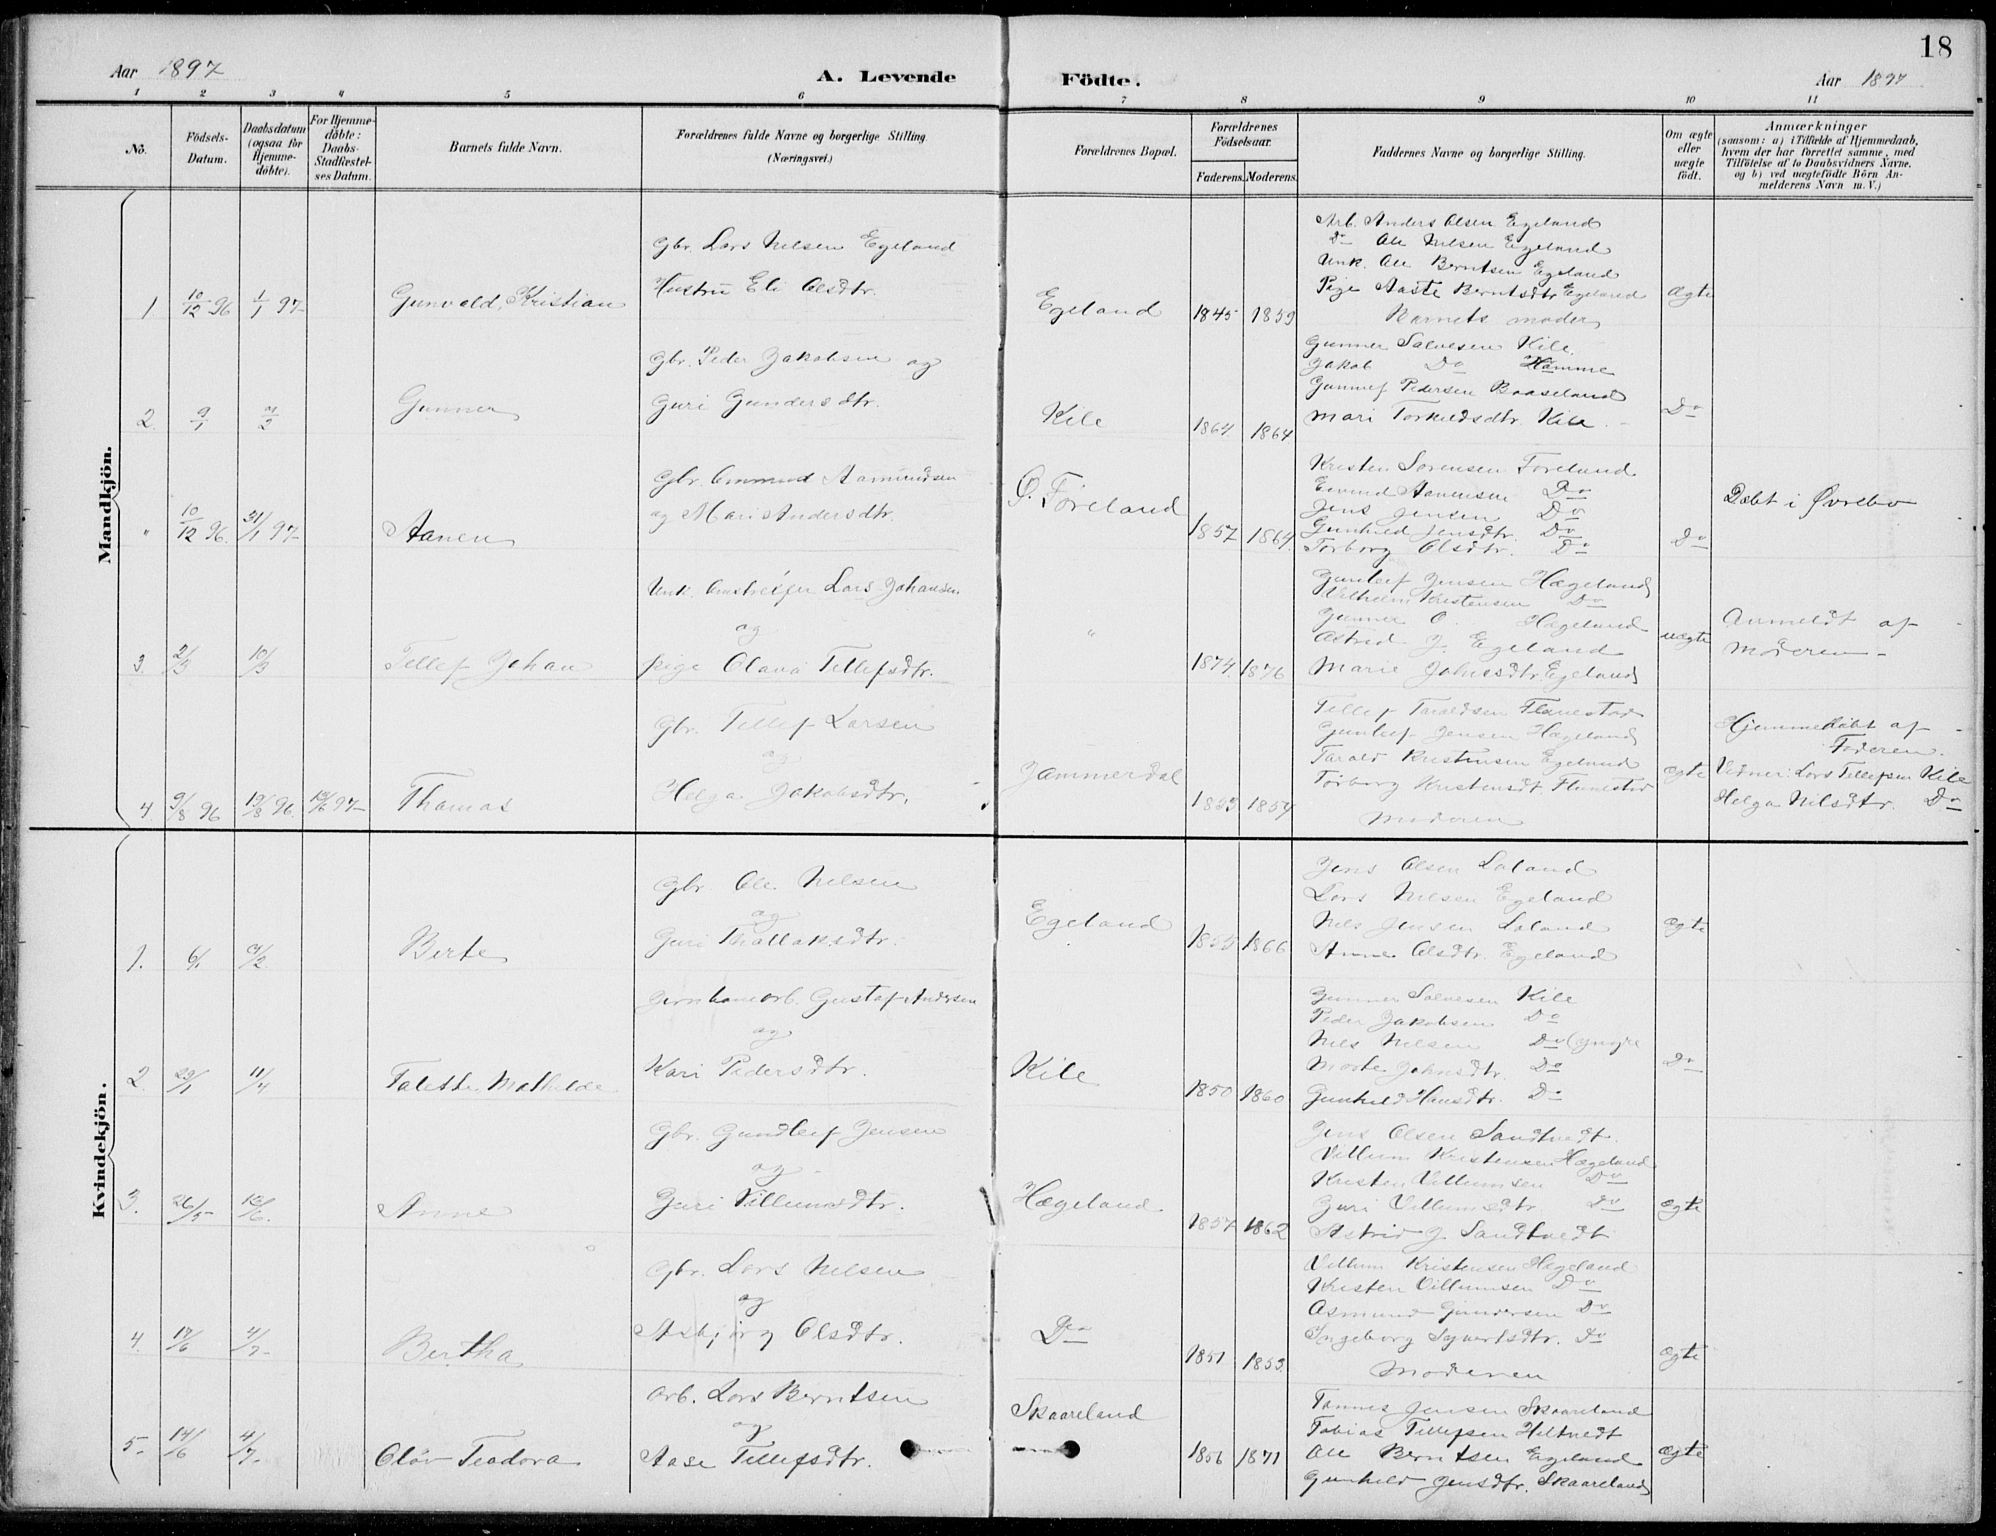 18
Aar 1897 A. Levende Födte. Aar 1897
1 2 3 4 5 6 7 8 9 10 11
No.
Födsels-Datum.
Daabsdatum (ogsaa for Hjemme-döbte).
For Hjemme-döbte: Daabs-Stadfæstel-ses Datum.
Barnets fulde Navn.
Forældrenes fulde Navne og borgerlige Stilling.
(Næringsvei.)
Forældrenes Bopæl.
Forældrenes Födselsaar.
Faderens. Moderens.
Faddernes Navne og borgerlige Stilling.
Om ægte eller uægte födt.
Anmærkninger
(saasom: a) i Tilfælde af Hjemmedaab,
hvem der har forrettet samme, med
Tilföielse af to Daabsvidners Navne,
og b) ved uægtefödte Börn An-
melderens Navn m. V.)
Mandkjön.
1 10/12 96 1/1 97 Gunvald Kristian
Gbr. Lars Nilsen Egeland
Hustru Eli Olsdtr.
Egeland 1845 1859
Arb. Anders Olsen Egeland
Do Ole Nilsen Egeland
Unk. Ole Berntsen Egeland
Pige Aaste Berntsdtr Egeland
Barnets moder
Ægte
2. 9/1 7/2 Gunner
Gbr. Peder Jakobsen og
Guri Gundersdtr.
Kile 1864 1864
Gunner Salvesen Kile.
Jakob Do Homme
Gunnuf Pedersen Baaseland
Mari Torkildsdtr. Kile.
Do
" 10/12 96. 31/1 97 Aanen
Gbr. Ommund Aamundsen
og Mari Andersdtr.
Ø. Føreland 1857 1864.
Kristen Sørensen Føreland
Eivind Aanensen Do
Jens Jensen Do
Gunhild Jensdtr. Do
Torborg Olsdtr. Do
Do
Døbt i Øvrebø
3. 2/3 10/3 Tellef Johan
Unk. Lars Johansen
og
pige Olava Tellefsdtr.
" 1874. 1876
Gunleif Jensen Hægeland
Vilhelm Kristensen Do
Gunner O. Hægeland
Astrid J. Egeland
Marie Johnsdtr. Egeland
uægte
Anmeldt af
Moderen
4 9/8 96 19/8 96. 97 Thomas
Gbr. Tellef Larsen
og
Helga Jakobsdtr.
Jammerdal 1854
Tellef Taraldsen Flanestad
Gunleif Jensen Hægeland
Tarald Kristensen Egeland
Torborg Kristensdt Flanestad
Moderen
ægte
Hjemmedøbt af
Faderen.
Vidner: Lars Tellefsen Kile
Helga Nilsdtr. Do
Kvindekjön.
1. 6/1 7/2 Berte
Gbr Ole Nilsen
og
Guri Thallaksdtr.
Egeland 1855 1866
Jens Olsen Loland
Lars Nilsen Egeland
Nils Jensen Loland
Anne Olsdtr. Egeland
ægte
2. 29/1 11/4 Talette Mathilde
Jernbanearb. Gustaf Andersen
og
Kari Pedersdtr.
Kile 1850 1860
Gunner Salvesen Kile
Peder Jakobsen Do
Nils Nilsen Do (yngre
Marte Johnsdtr. Do
Gunhild Hansdtr. Do
Do
3. 26/5 Anne
Gbr. Gundleif Jensen
og
Guri Villumsdtr.
Hægeland 1857 1862
Jens Olsen Sandtvedt
Villum Kristensen Hægeland
Kristen Villumsen Do
Guri Villumsdtr. Do
Astrid J. Sandtvedt
ægte
4. 17/6 4/7 Bertha
Gbr. Lars Nilsen
og
Asbjørg Olsdtr.
Do 1851 1853.
Villum Kristensen Hægeland
Kristen Villumsen Do
Asmund Gundersen Do
Ingeborg Syvertsdtr. Do
Moderen
ægte
5 14/6 4/7 Oløv Teodora
Arb. Lars Berntsen
og
Aase Tellefsdtr.
Skaareland 1856 1871
Tønnes Jensen Skaareland
Tobias Tellefsen Hiltvedt
Ole Berntsen Egeland
Gunhild Jensdtr. Skaareland
ægte